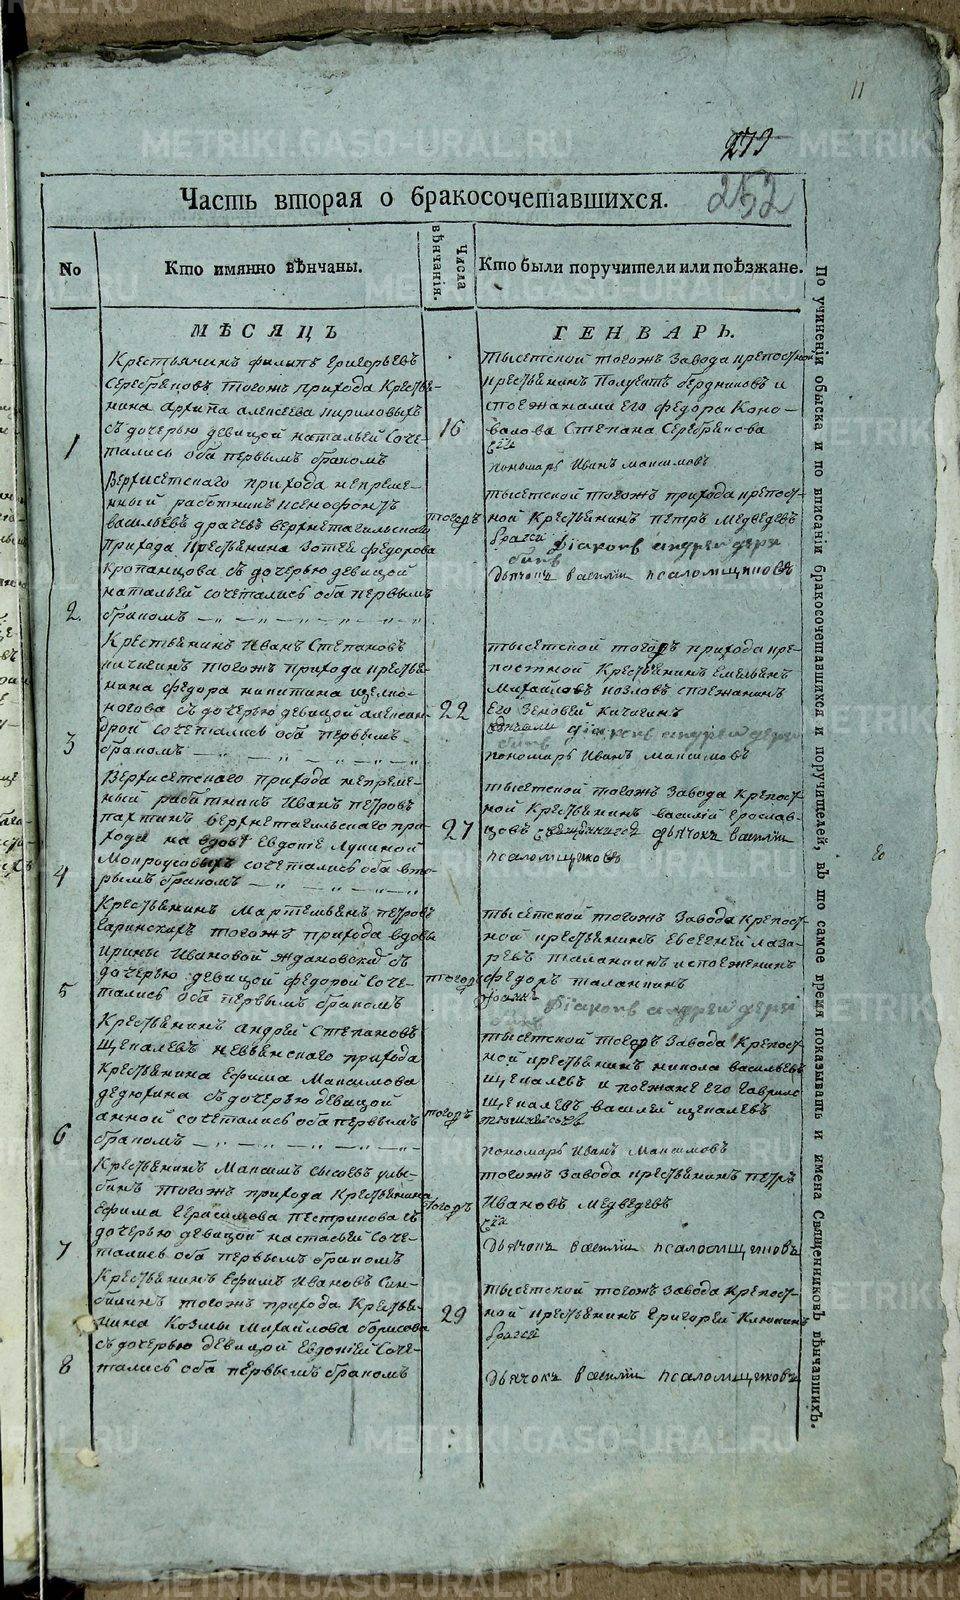 11
273
252
Часть вторая о бракосочетавшихся.
No
Кто имянно вѣнчаны.
Числа вѣнчанія.
Кто были поручители или поѣзжане.
МѢСЯЦЪ
ГЕНВАРЬ.
1
Крестьянинъ Филипъ Григорьевъ
Серебряковъ тогожъ прихода Крестья-
нина Архипа Алексеева Кириловыхъ
съ дочерью девицой Натальей Соче-
тались оба первымъ бракомъ
16
тысетской тогожъ Завода крепостной
крестьянинъ Бердниковъ и
споезжанами Его Федора Коно-
валова Степана Серебрякова
пономарь Иванъ Максимовъ
2.
Верхисетскаго прихода непреме-
нный работникъ Ксенофонтъ
Васильевъ Драчевъ Верхнетагильскаго
прихода Крестьянина Зотея Федорова
Кропанцова съ дочерью девицой
Натальей сочетались оба первымъ
бракомъ
тогожъ
тысетской тогожъ прихода крепост-
ной Крестьянинъ Петръ Медведевъ
Діаконъ Андрей
Дьячокъ Василій Псаломщиковъ
3
Крестьянинъ Иванъ Степановъ
Кичигинъ тогожъ прихода Крестья-
нина Федора Никитина Щелко-
ногова съ дочерью девицой Алексан-
дрой сочетались оба первымъ
бракомъ
22
тысетской тогожъ прихода кре-
постной Крестьянинъ Емельянъ
Михайловъ Козловъ споезжанинъ
Его Зеновей Кичигинъ
Діаконъ Андрей
пономарь Иванъ Максимовъ
4
Верхисетскаго прихода непреме-
нный работникъ Иванъ Петровъ
Пахтинъ Верхнетагильскаго при-
хода на вдове Евдокие Лукиной
Мокроусовыхъ сочетались оба вто-
рымъ бракомъ
27
тысетской тогожъ Завода Крепост-
ной Крестьянинъ Василій Ерослав-
цовъ дьячокъ Василій
Псаломщиковъ
5
Крестьянинъ Мартемьянъ Петровъ
тогожъ прихода вдовы
Ирины Ивановой Ждановской съ
дочерью девицой Федорой Соче-
тались оба первымъ бракомъ
тогожъ
тысетской тогожъ Завода Крепост-
ной крестьянинъ Евсегней Лаза-
ревъ Талапкинъ и споезженинъ
Федоръ Талапкинъ
Діаконъ Андрей
6
Крестьянинъ Андрей Степановъ
Щепалевъ Невьянскаго прихода
Крестьянина Ефима Максимова
Дедюхина съ дочерью девицой
Анной сочетались оба первымъ
бракомъ
тогожъ
тысетской тогожъ Завода Крепост-
ной крестьянинъ Никола Васильевъ
Щепалевъ и поезжане Его Гаврило
Щепалевъ Василей Щепалевъ
пономарь Иванъ Максимовъ
7
Крестьянинъ Максимъ Сысоевъ Улы-
бинъ тогожъ прихода Крестьянина
Ефима Герасимова Пестрикова съ
дочерью девицой Настасьей Соче-
тались оба первымъ бракомъ
тогожъ
тогожъ Завода крестьянинъ Петръ
Ивановъ Медведевъ
Дьячокъ Василій Псаломщиковъ
8
Крестьянинъ Ефимъ Ивановъ
тогожъ прихода Крестья-
нина Козмы Михайлова Борисова
съ дочерью девицой Евдокіей Соче-
тались оба первымъ бракомъ
29
тысетской тогожъ Завода Крепост-
ной крестьянинъ Григорей Клюкинъ
Дьячокъ Василій Псаломщиковъ
По учиненіи обыска и по вписаніи бракосочетавшихся и поручителей, въ то самое время показывать и имена Священниковъ вѣнчавшихъ.
METRIKI.GASO-URAL.RU